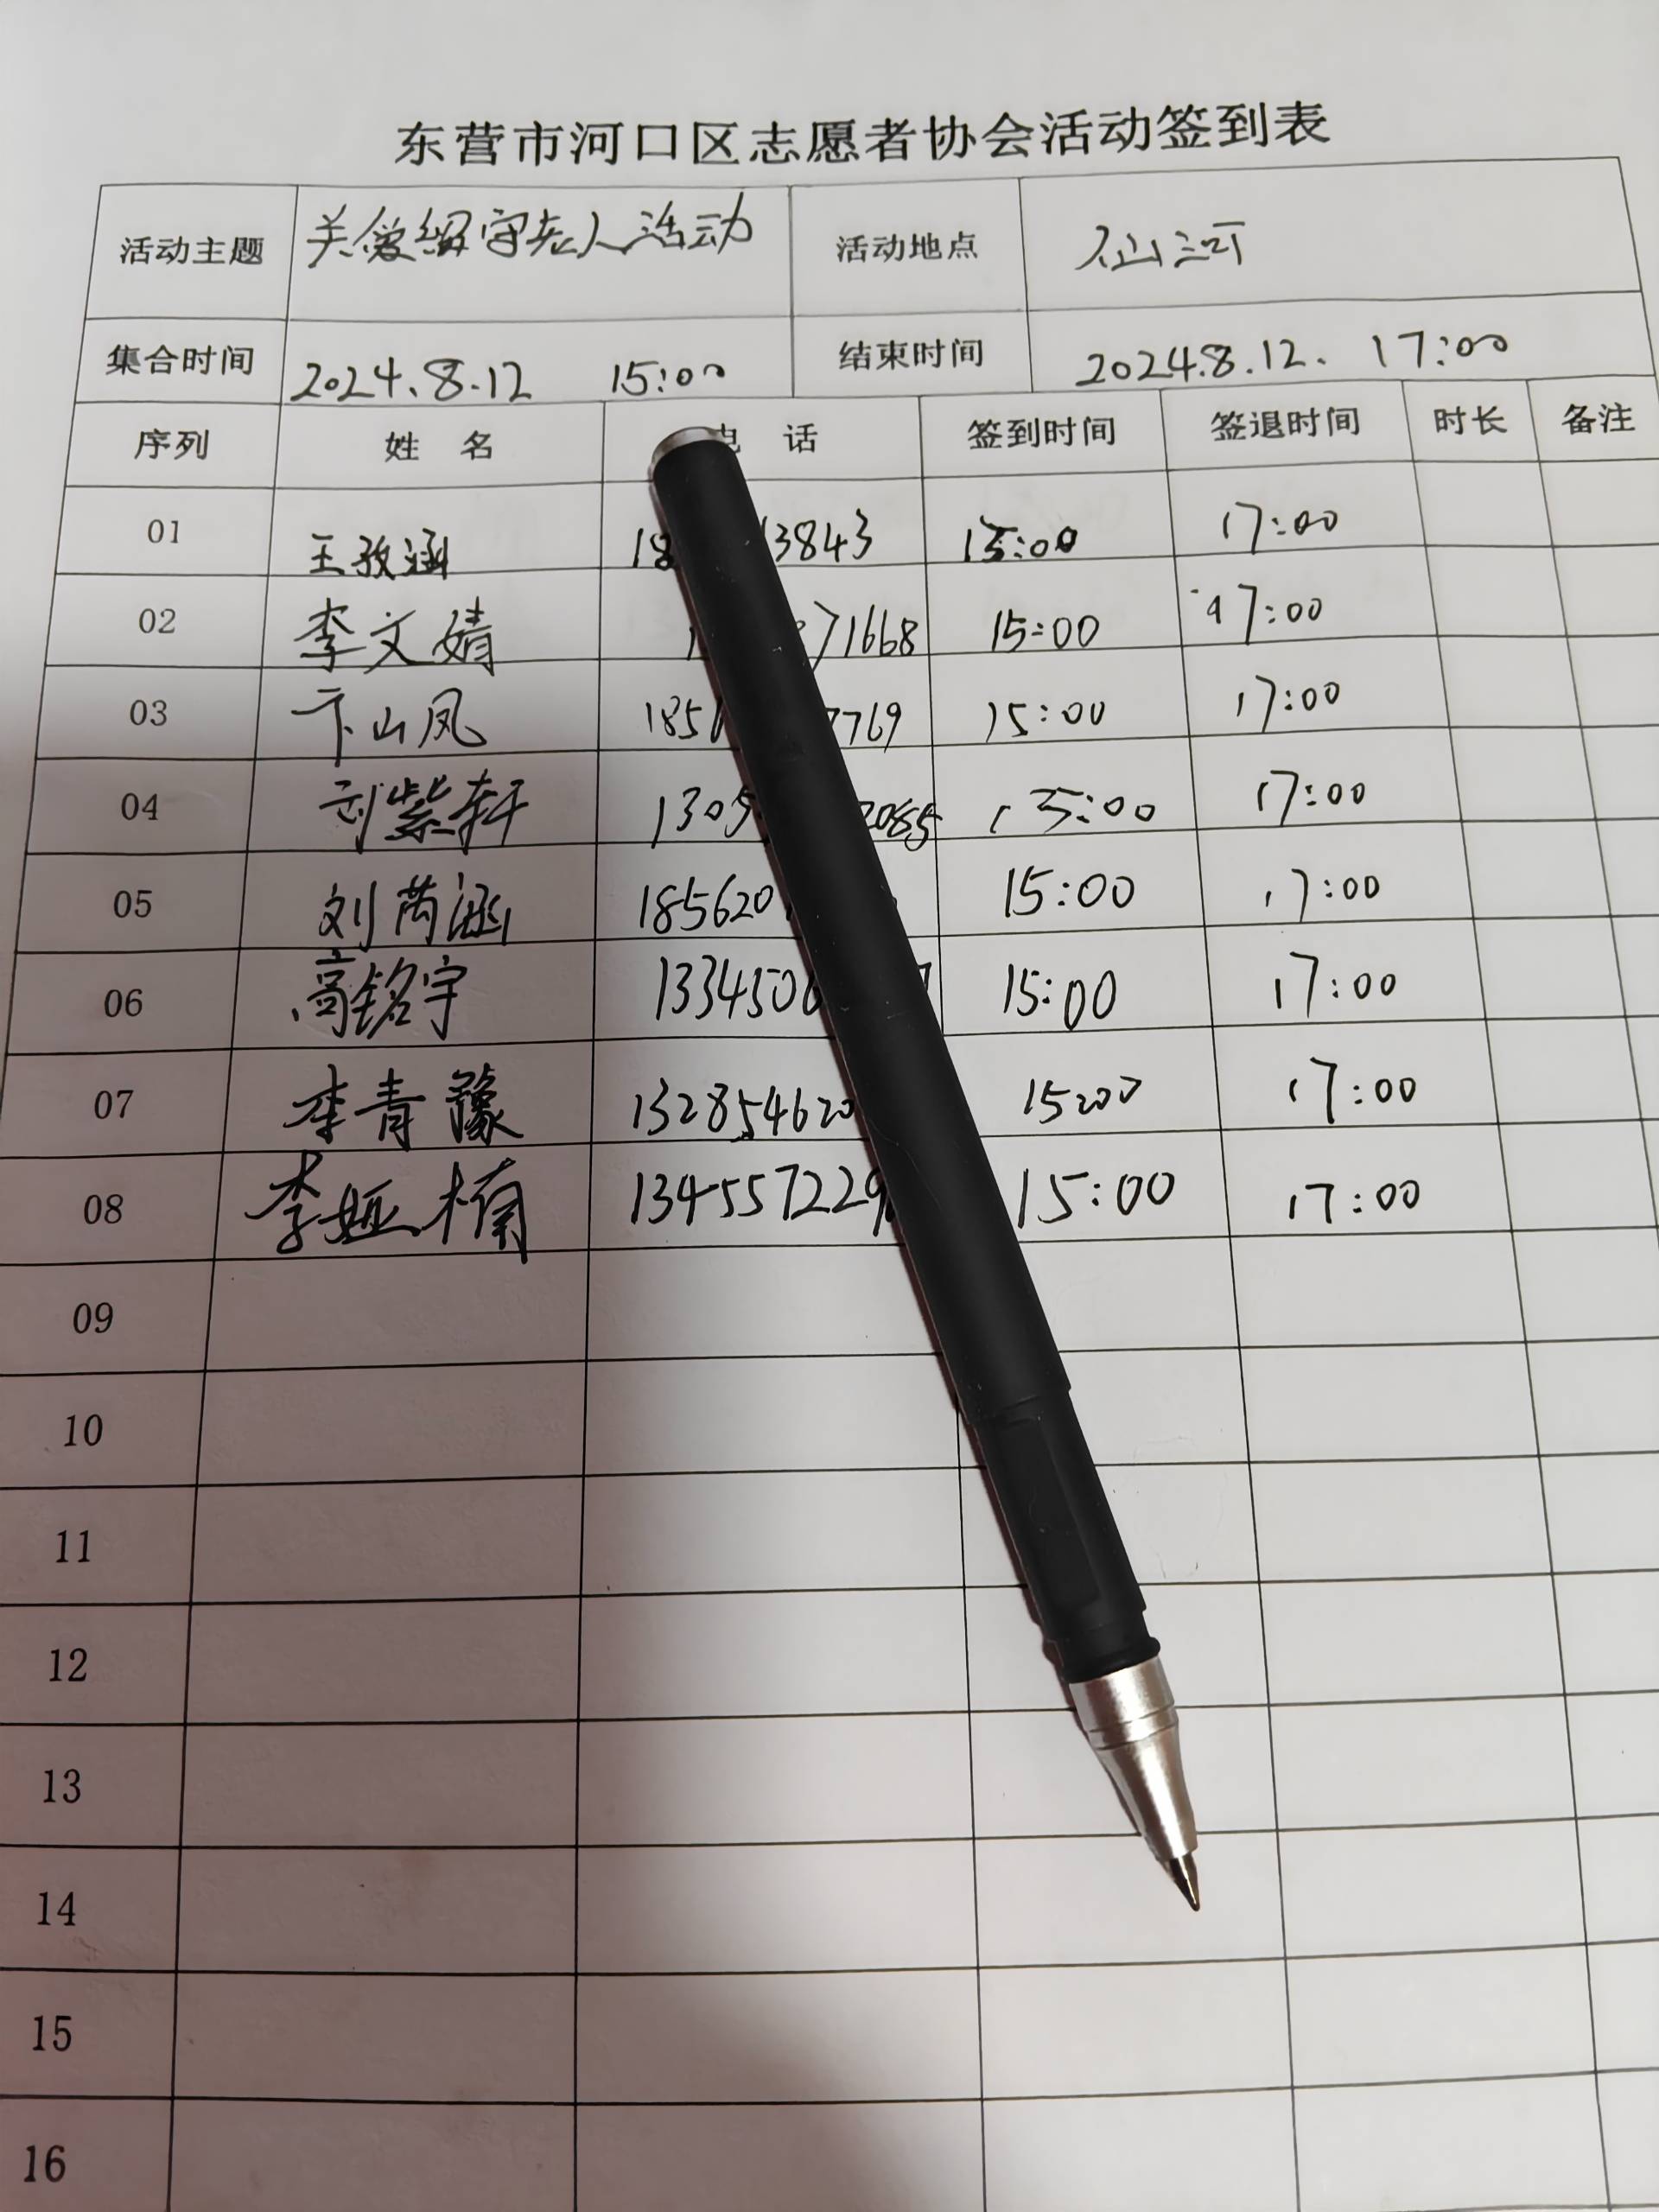 东营市河口区志愿者协会活动签到表
活动主题 关爱留守老人活动 活动地点 仙河
集合时间 2024.8.12 15:00 结束时间 2024.8.12. 17:00
序列 姓名 电话 签到时间 签退时间 时长 备注
01 王孜涵 18 3843 15:00 17:00
02 李文婧 1 71668 15:00 17:00
03 卞山凤 185 7769 15:00 17:00
04 刘紫轩 1305 2085 15:00 17:00
05 刘芮涵 185620 15:00 17:00
06 高铭宇 1334506 15:00 17:00
07 李青豫 132854620 15:00 17:00
08 李娅楠 134557229 15:00 17:00
09
10
11
12
13
14
15
16